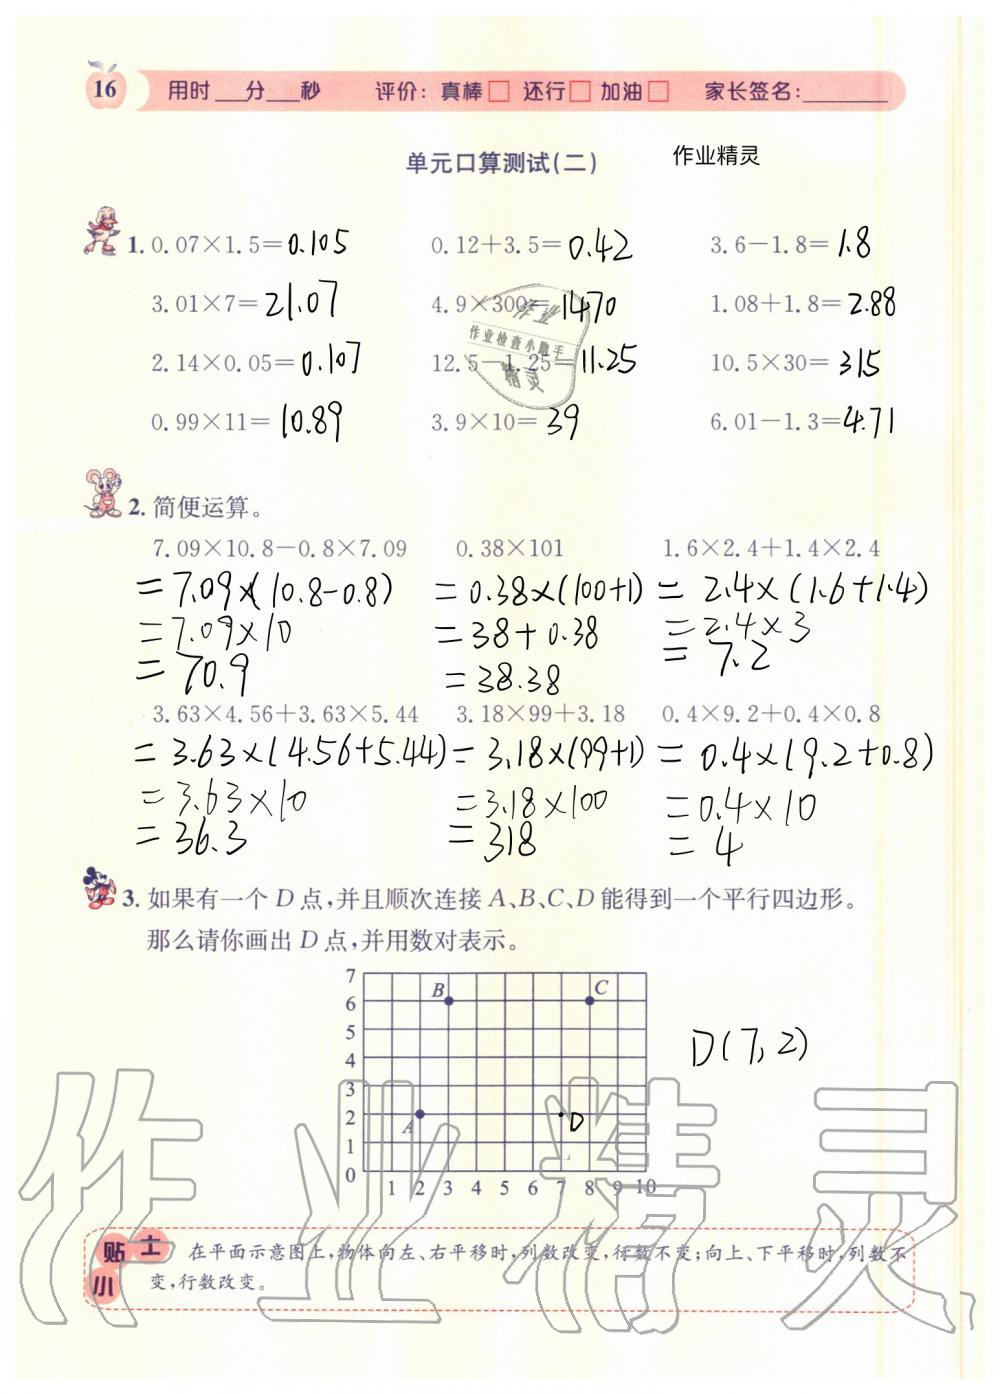 16 用时___分___秒 评价：真棒□ 还行□ 加油□ 家长签名：________
单元口算测试(二) 作业精灵
1. 0.07×1.5=0.105 0.12+3.5=0.42 3.6-1.8=1.8
3.01×7=21.07 4.9×300=1470 1.08+1.8=2.88
2.14×0.05=0.107 12.5-1.25=11.25 10.5×30=315
0.99×11=10.89 3.9×10=39 6.01-1.3=4.71
作业
作业检查小帮手
精灵
2. 简便运算。
7.09×10.8-0.8×7.09 0.38×101 1.6×2.4+1.4×2.4
=7.09×(10.8-0.8) =0.38×(100+1) =2.4×(1.6+1.4)
=7.09×10 =38+0.38 =2.4×3
=70.9 =38.38 =7.2
3.63×4.56+3.63×5.44 3.18×99+3.18 0.4×9.2+0.4×0.8
=3.63×(4.56+5.44) =3.18×(99+1) =0.4×(9.2+0.8)
=3.63×10 =3.18×100 =0.4×10
=36.3 =318 =4
3. 如果有一个D点,并且顺次连接A、B、C、D能得到一个平行四边形。
那么请你画出D点,并用数对表示。
7
B C
6
5
D(7,2)
4
3
2
A D
1
0
1 2 3 4 5 6 7 8 9 10
作业精灵
小贴士 在平面示意图上,物体向左、右平移时,列数改变,行数不变;向上、下平移时,列数不
变,行数改变。